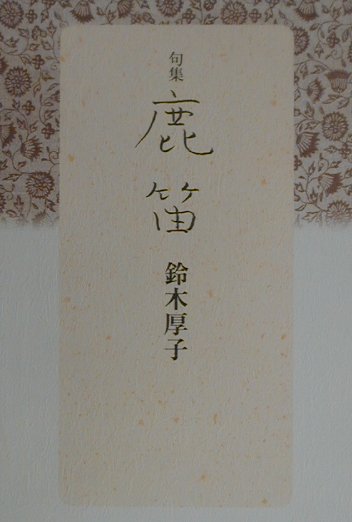 句集
鹿笛
鈴木厚子